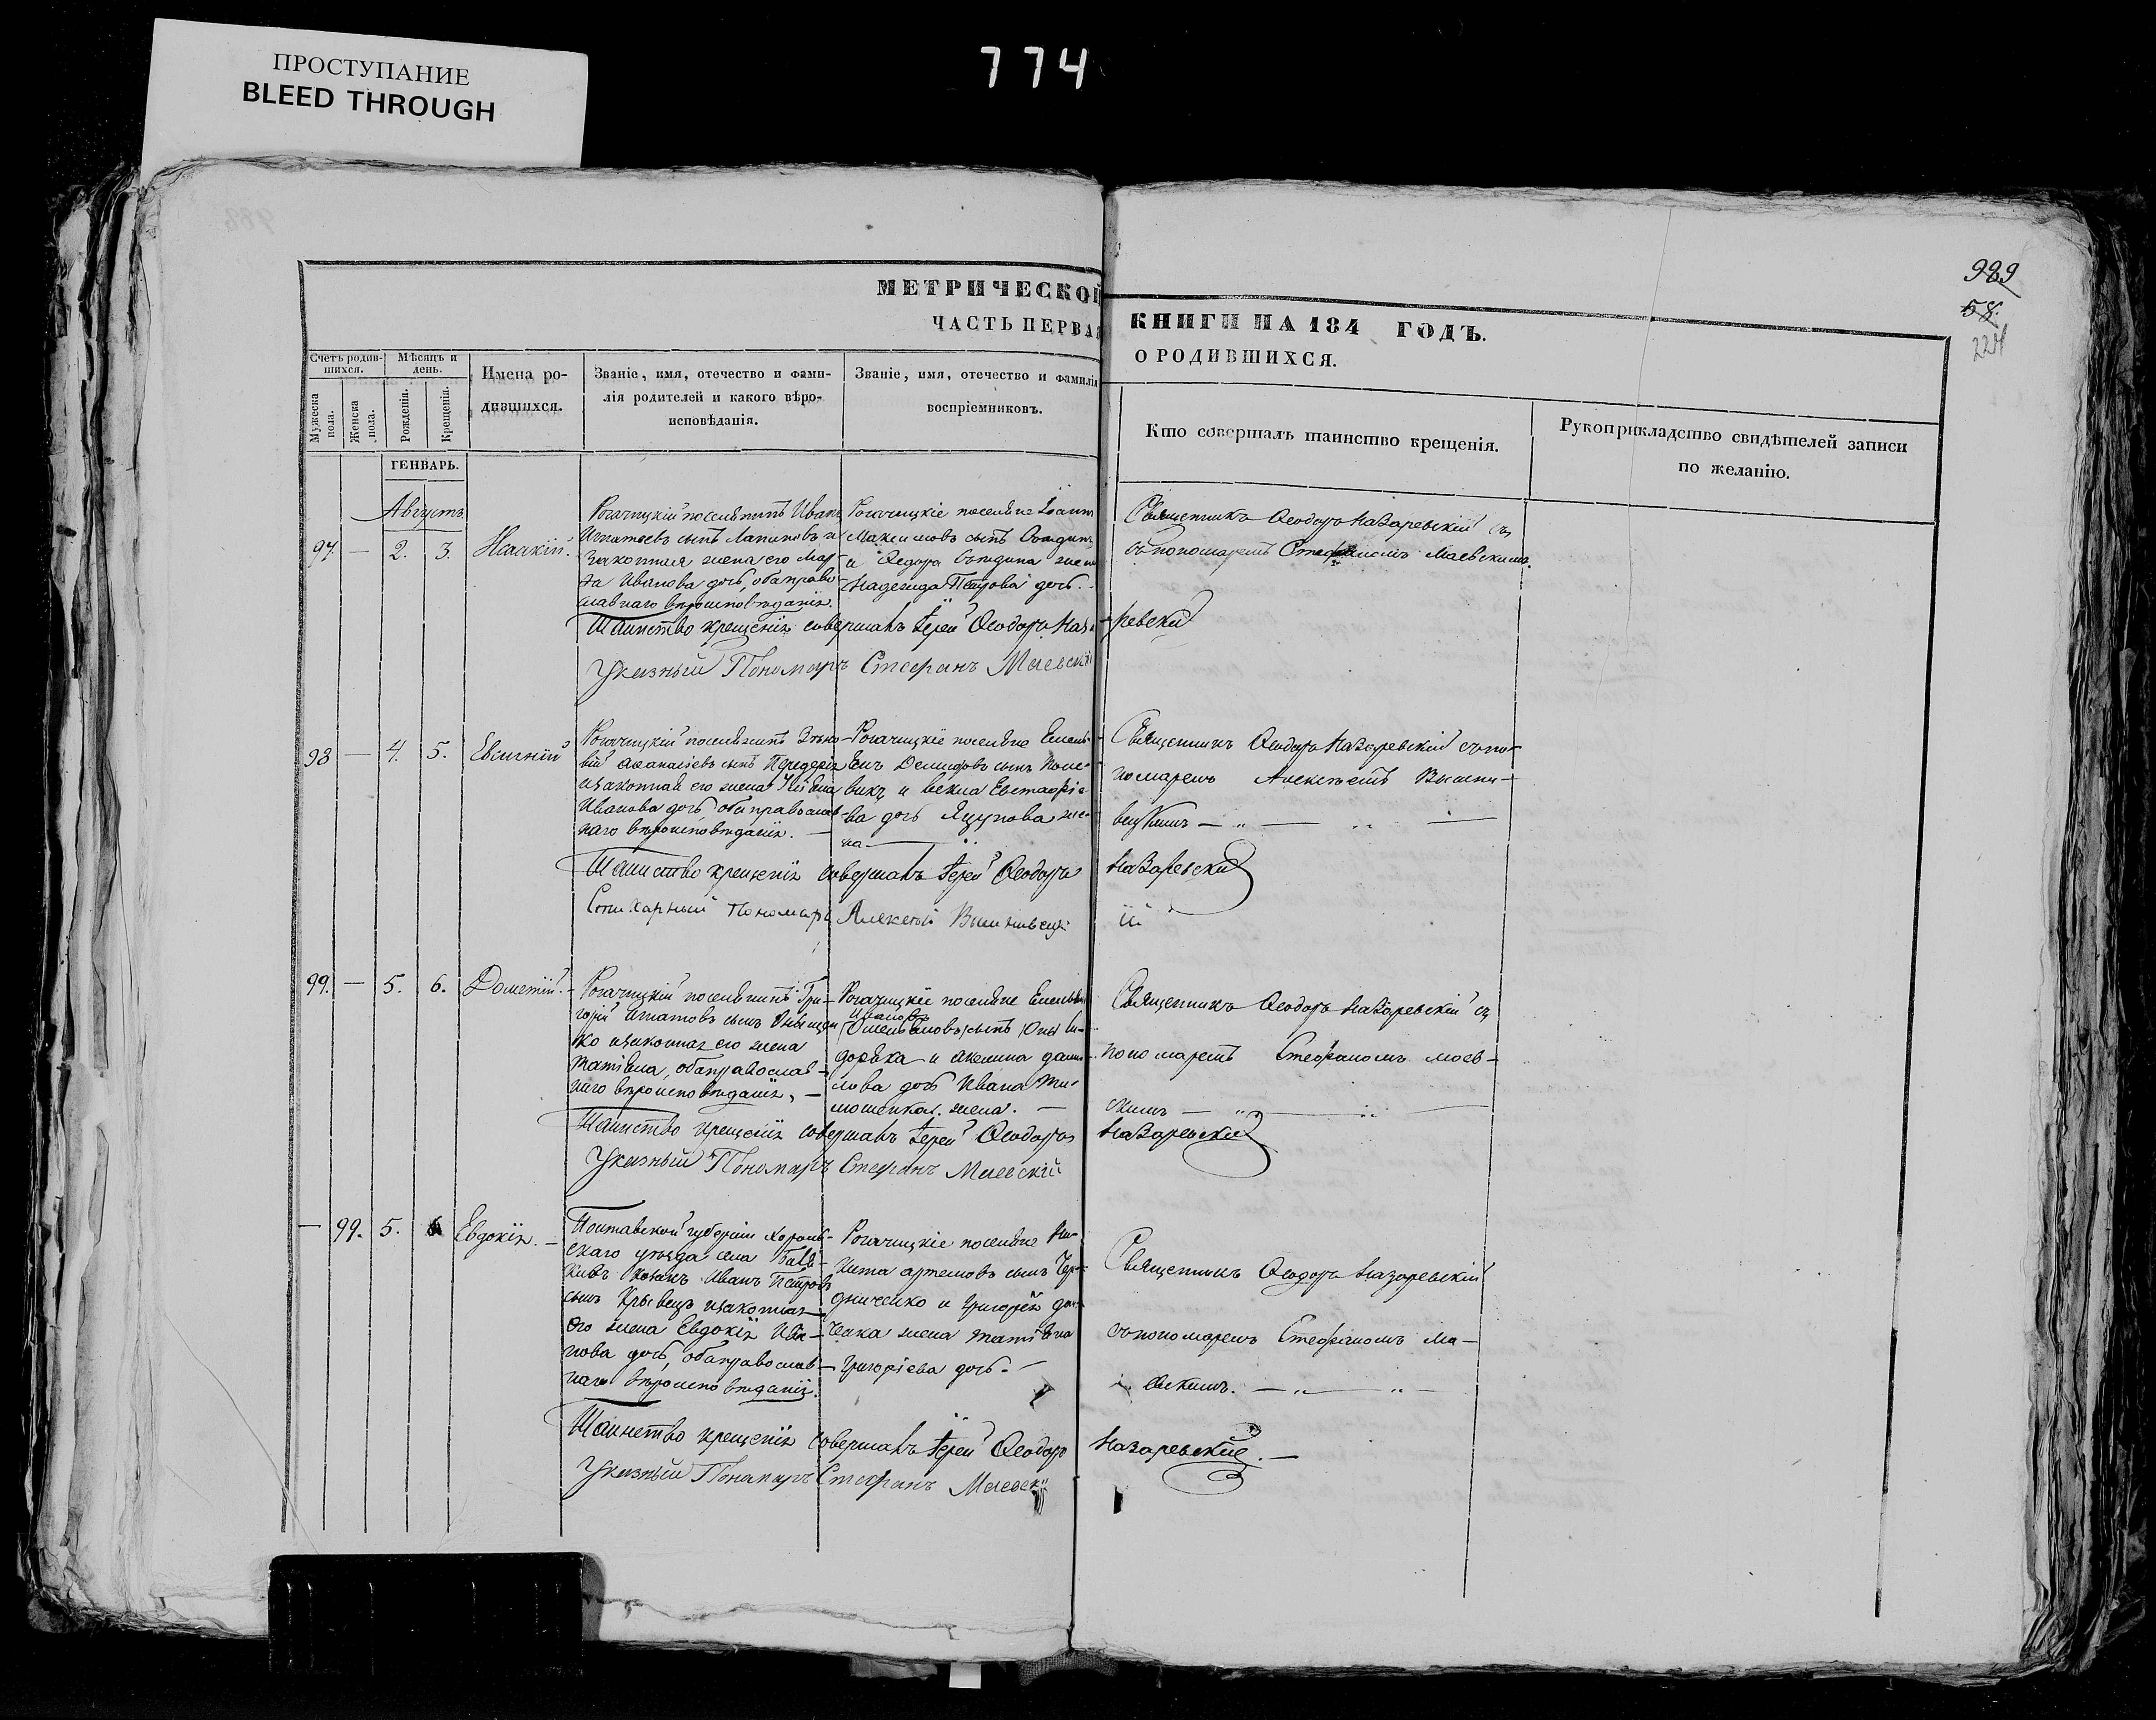 ПРОСТУПАНИЕ
BLEED THROUGH
774
989
58.
224
МЕТРИЧЕСКОЙ КНИГИ НА 184 ГОДЪ.
ЧАСТЬ ПЕРВАЯ О РОДИВШИХСЯ.
Счетъ родив-
шихся.
Мужеска пола.
Женска пола.
Мѣсяцъ и
день.
Рожденія.
Крещенія.
Имена ро-
дившихся.
Званіе, имя, отечество и фами-
лія родителей и какого вѣро-
исповѣданія.
Званіе, имя, отечество и фамилія
воспріемниковъ.
Кто совершалъ таинство крещенія.
Рукоприкладство свидѣтелей записи
по желанію.
ГЕНВАРЬ.
Августъ
97. — 2. 3. Исаакій.
Рогачицкій поселянинъ Иванъ
Игнатоевъ сынъ и
законная жена его Мар-
Иванова дочь, оба право-
славнаго вѣроисповѣданія.
Рогачицкіе поселяне Іоаннъ
Максимовъ сынъ
и Ѳедора жена
Надежда Петрова дочь.
Священникъ Ѳеодоръ Назаревскій съ
пономаремъ Стефаномъ Маевскимъ.
Таинство крещенія совершалъ Іерей Ѳеодоръ Назаревскій
Указный Пономарь Стефанъ Маевскій
98 — 4. 5. Евгеній
Рогачицкій поселянинъ Зѣно-
вій Аѳанасіевъ сынъ
изаконная его жена
Иванова дочь, оба православ-
наго вѣроисповѣданія. —
Рогачицкіе поселяне Емель-
Демидовъ сынъ
и Евстафіе-
ва дочь Яцунова же-
на
Священникъ Ѳеодоръ Назаревскій съ по-
номаремъ Алексѣемъ Вышни-
вецкимъ
Таинство крещенія совершалъ Іерей Ѳеодоръ Назаревскій
Стихарный Пономарь Алексѣй Вышнивецкій
99. — 5. 6. Дометій.
Рогачицкій поселянинъ Гри-
горій Игнатовъ сынъ Онищен
ко изаконная его жена
Татіана, оба православ-
наго вѣроисповѣданія, —
Рогачицкіе поселяне Емельянъ
Ивановъ
сынъ
и Акилина Дани-
лова дочь Ивана Ти-
мошенка жена. —
Священникъ Ѳеодоръ Назаревскій съ
пономаремъ Стефаномъ Маев-
скимъ
Таинство крещенія совершалъ Іерей Ѳеодоръ Назаревскій
Указный Пономарь Стефанъ Маевскій
— 99. 5. 6 Евдокія. —
Полтавской губерніи Хороль-
скаго уѣзда села
козакъ Иванъ Петровъ
сынъ изаконная
его жена Евдокія Ива-
нова дочь, оба православ-
наго вѣроисповѣданія.
Рогачицкіе поселяне Ни-
кита Артемовъ сынъ Чере-
дниченко и Григорія
жена Татіана
Григоріева дочь.
Священникъ Ѳеодоръ Назаревскій
съ пономаремъ Стефаномъ Ма-
евскимъ.
Таинство крещенія совершалъ Іерей Ѳеодоръ Назаревскій. —
Указный Пономарь Стефанъ Маевскій